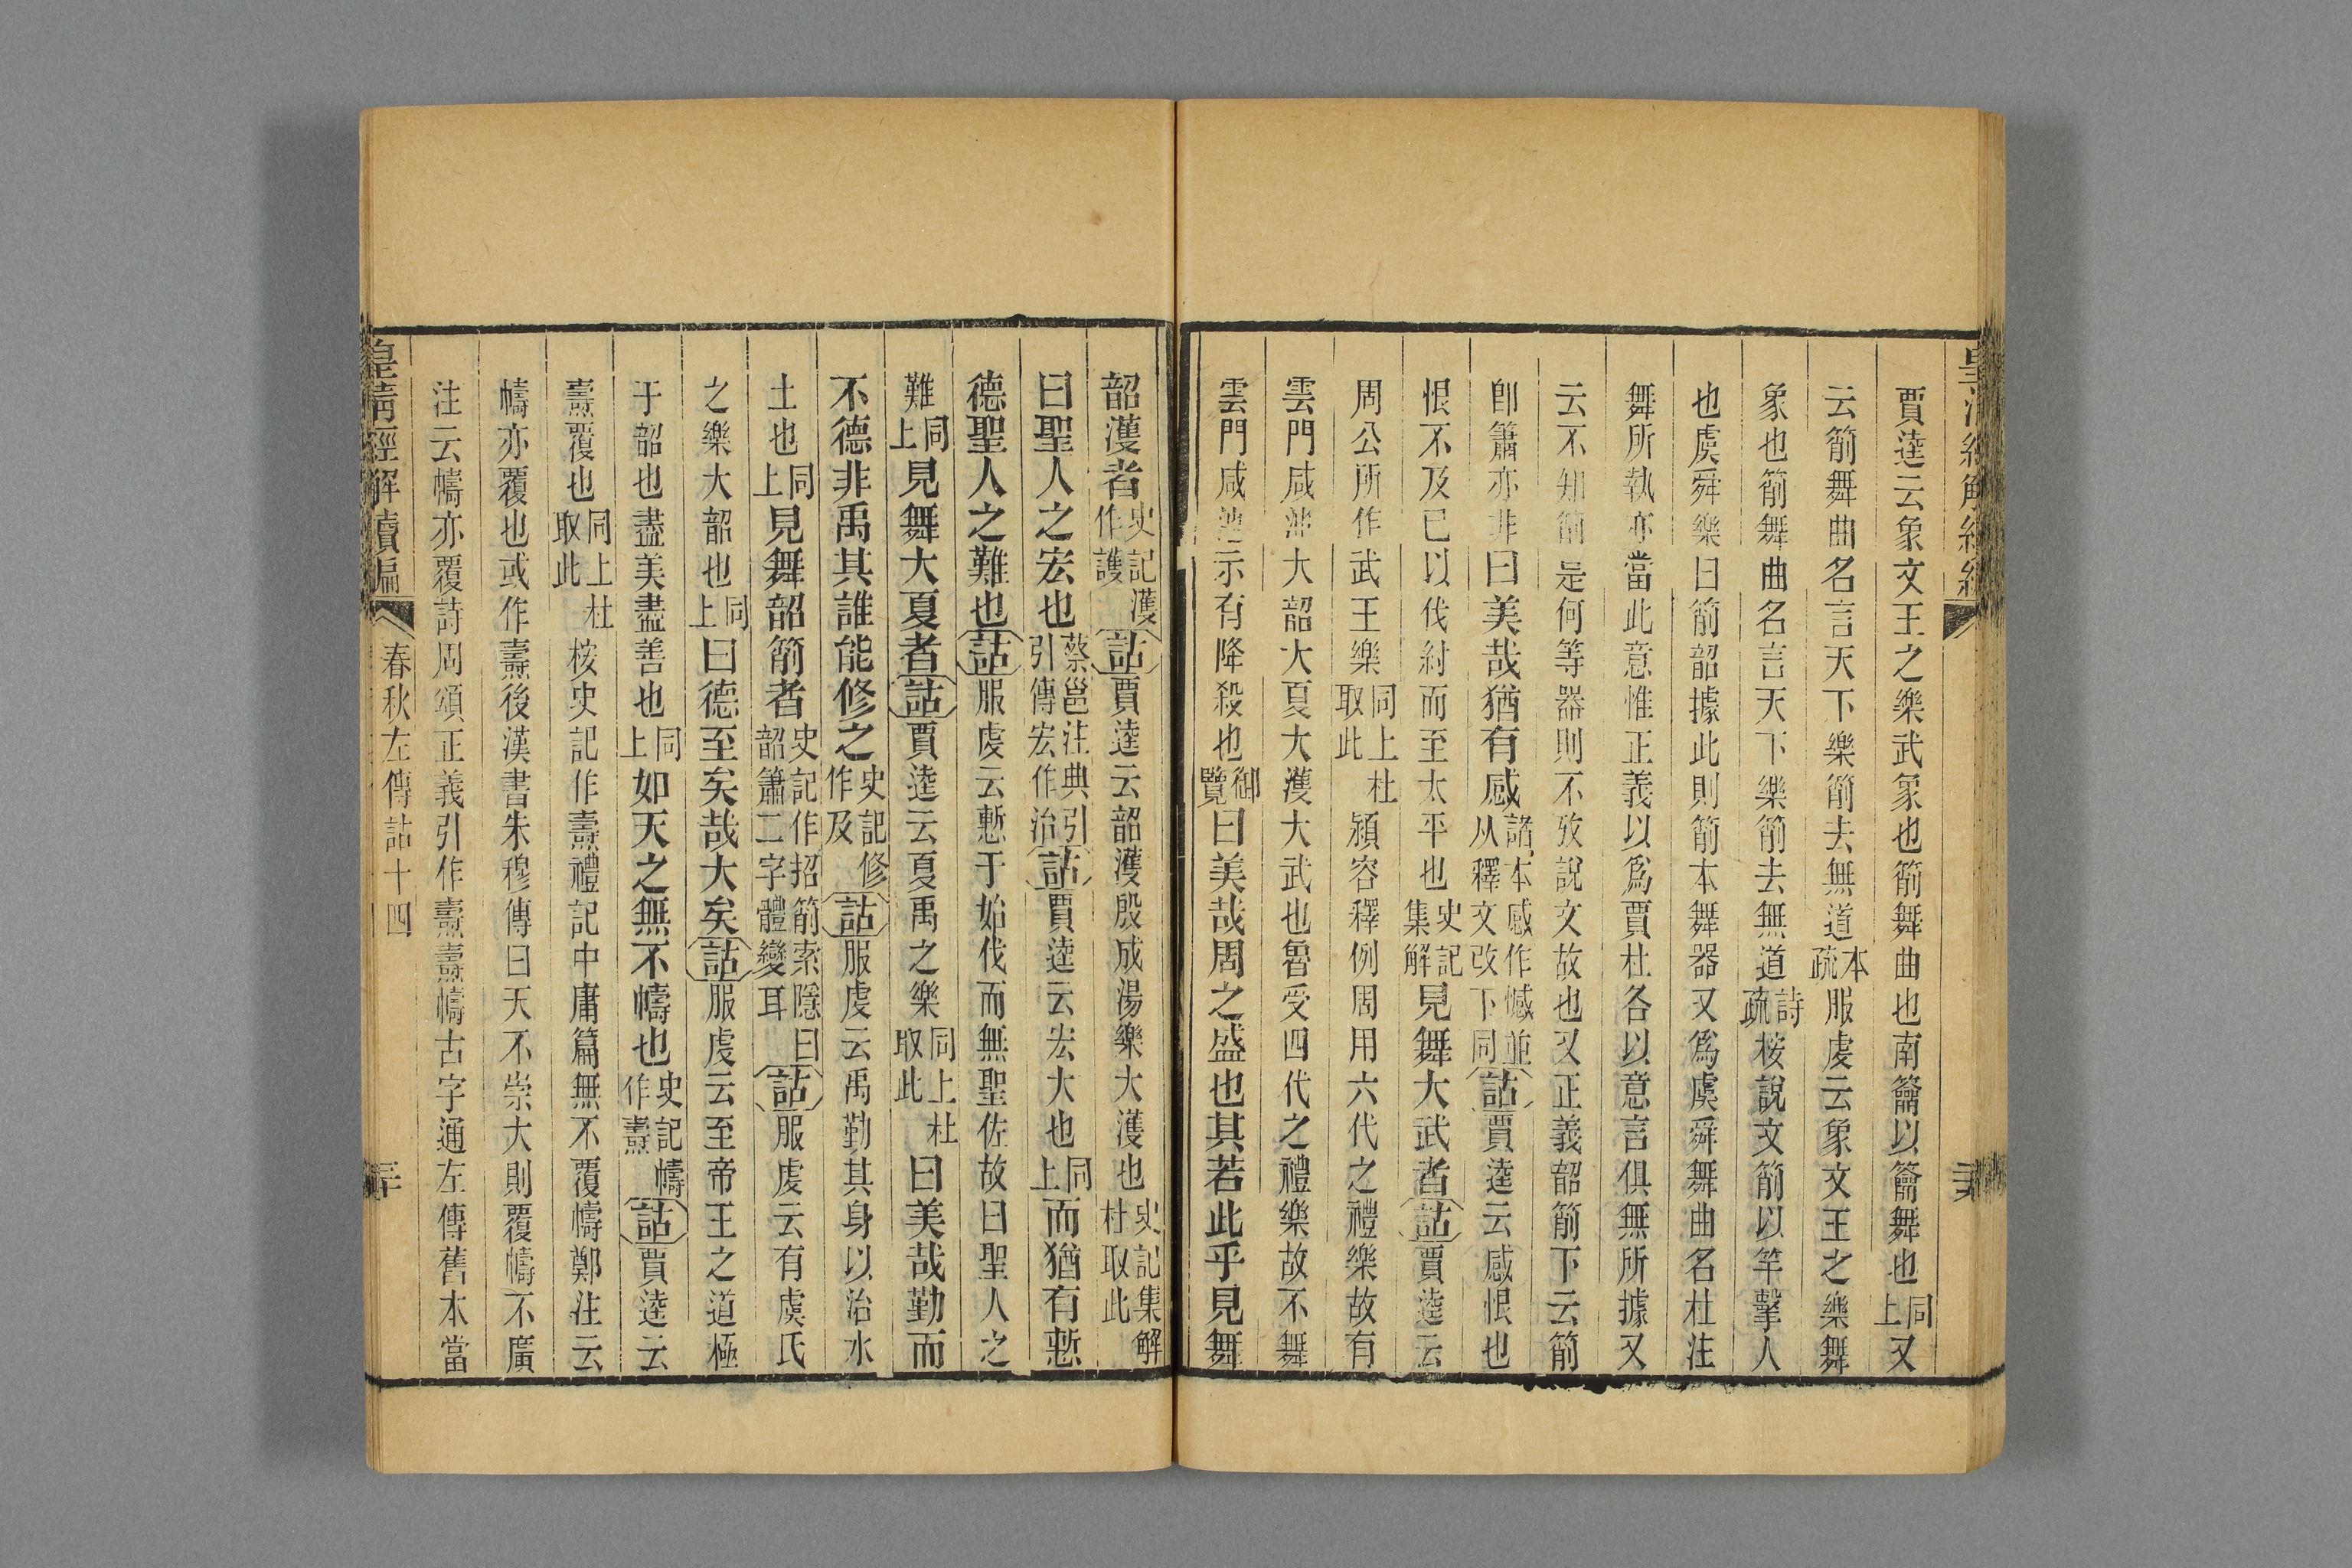 賈逵云象文王之樂武象也箾舞曲也南籥以籥舞也同上又
云箾舞曲名言天下樂箾去無道本疏服虔云象文王之樂舞
象也箾舞曲名言天下樂箾去無道詩疏桉說文箾以竿擊人
也虞舜樂曰箾韶據此則箾本舞器又爲虞舜舞曲名杜注
舞所執亦當此意惟正義以爲賈杜各以意言俱無所據又
云不知箾是何等器則不攷說文故也又正義韶箾下云箾
卽簫亦非曰美哉猶有感諸本感作憾並从釋文改下同詁賈逵云感恨也
恨不及已以伐紂而至太平也史記集解見舞大武者詁賈逵云
周公所作武王樂同上杜取此潁容釋例周用六代之禮樂故有
雲門咸池大韶大夏大濩大武也魯受四代之禮樂故不舞
雲門咸池示有降殺也御覽曰美哉周之盛也其若此乎見舞
韶濩者史記濩作護詁賈逵云韶濩殷成湯樂大濩也史記集解杜取此
曰聖人之宏也蔡邕注典引引傳宏作治詁賈逵云宏大也同上而猶有慙
德聖人之難也詁服虔云慙于始伐而無聖佐故曰聖人之
難同上見舞大夏者詁賈逵云夏禹之樂同上杜取此曰美哉勤而
不德非禹其誰能修之史記修作及詁服虔云禹勤其身以治水
土也同上見舞韶箾者史記作招箾索隱曰韶簫二字體變耳詁服虔云有虞氏
之樂大韶也同上曰德至矣哉大矣詁服虔云至帝王之道極
于韶也盡美盡善也同上如天之無不幬也史記幬作燾詁賈逵云
燾覆也同上杜取此桉史記作燾禮記中庸篇無不覆幬鄭注云
幬亦覆也或作燾後漢書朱穆傳曰天不崇大則覆幬不廣
注云幬亦覆詩周頌正義引作燾燾幬古字通左傳舊本當
皇清經解續編
春秋左傳詁十四